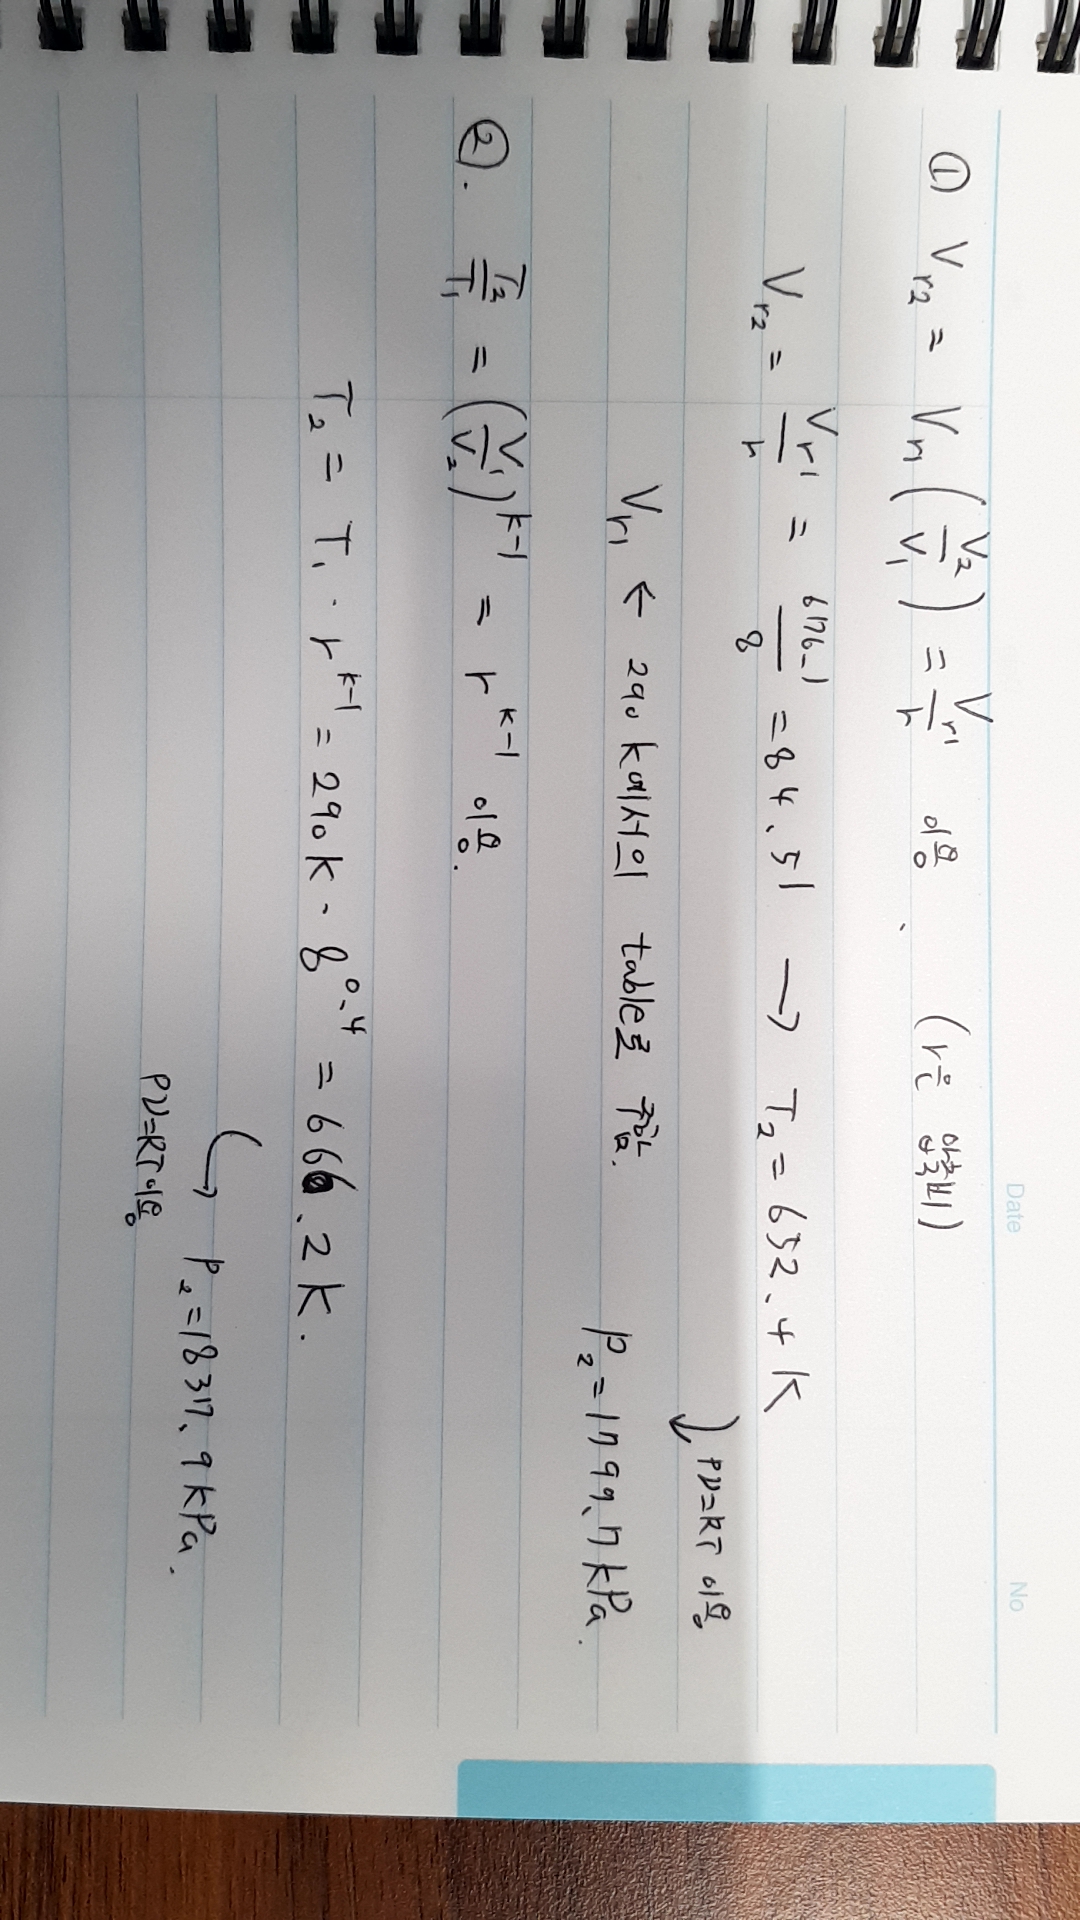 Date
No
① Vr2 = Vr1 (V2/V1) = Vr1/r 이용. (r은 압축비)
Vr2 = Vr1/r = 676.1/8 = 84.51 → T2 = 652.4 K
PV=RT 이용
Vr1 ← 290 K에서의 table로 구함.
P2 = 1799.7 kPa.
②. T2/T1 = (V1/V2)^k-1 = r^k-1 이용.
T2 = T1 · r^k-1 = 290 K · 8^0.4 = 666.2 K.
→ P2 = 1837.9 kPa.
PV=RT 이용